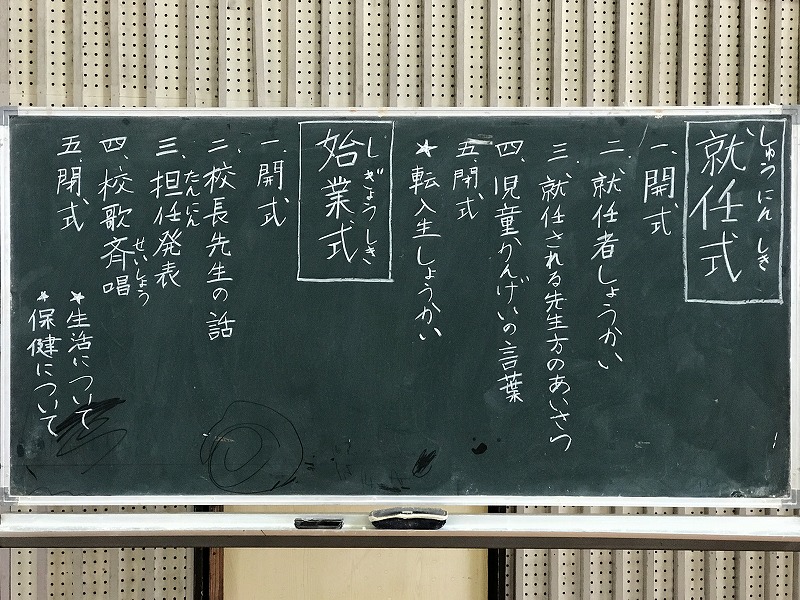 就任式
しゅうにんしき
一、開式
二、就任者しょうかい
三、就任される先生方のあいさつ
四、児童かんげいの言葉
五、閉式
★転入生しょうかい
始業式
しぎょうしき
一、開式
二、校長先生の話
三、担任発表
たんにん
四、校歌斉唱
せいしょう
五、閉式
★生活について
★保健について